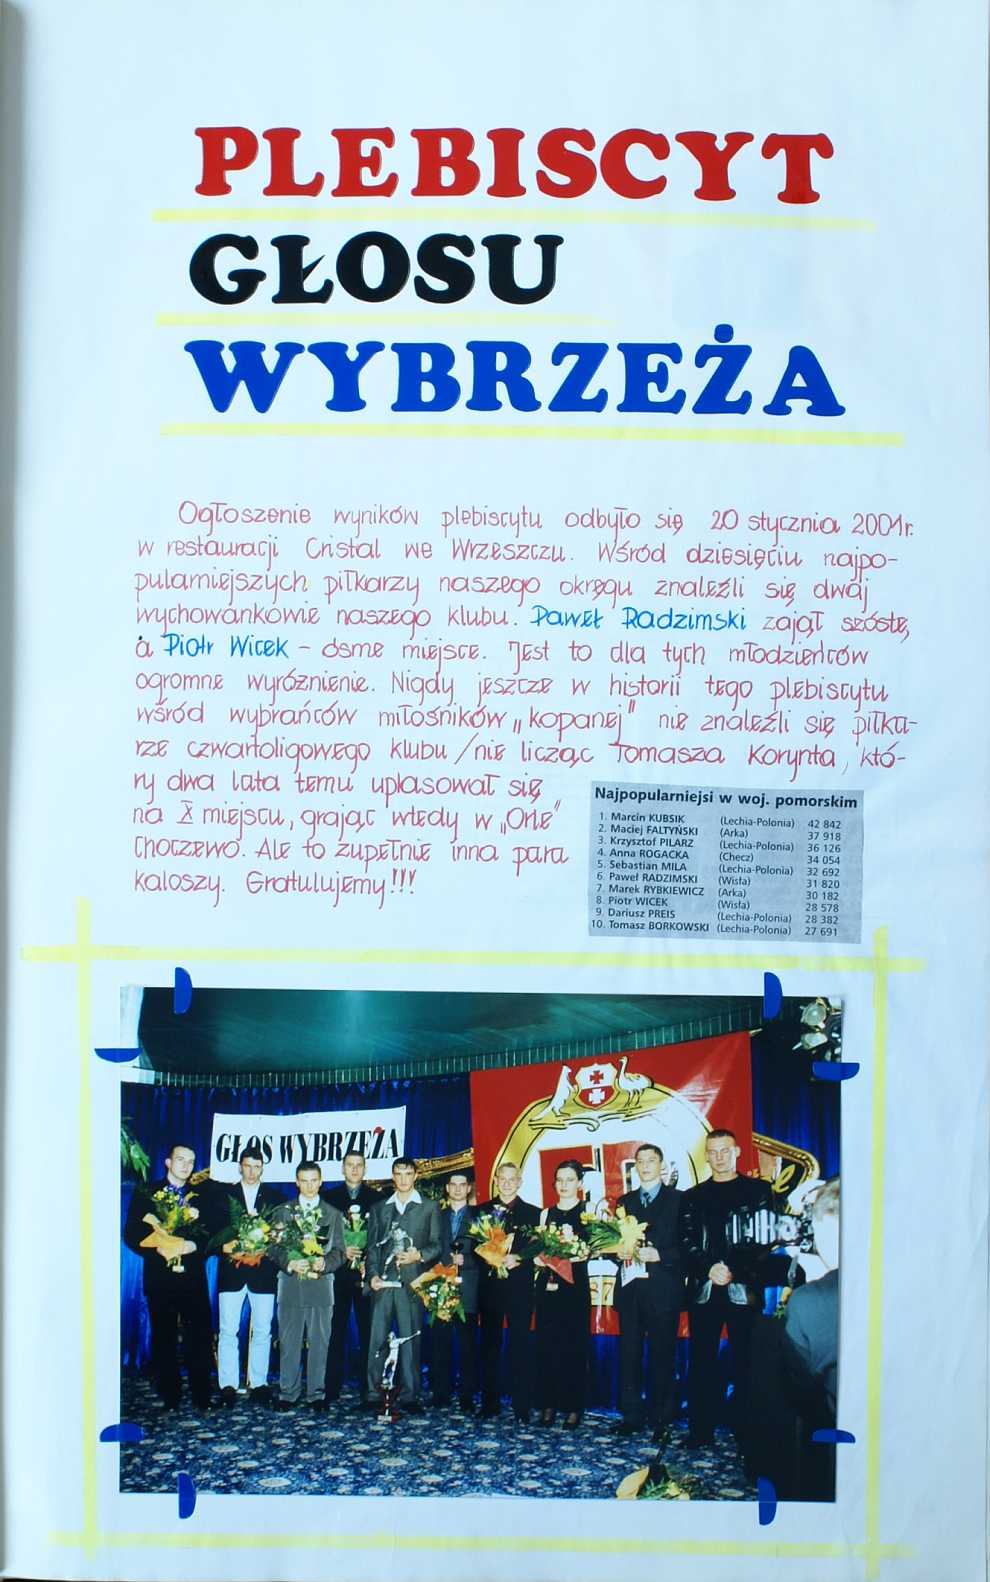 PLEBISCYT
GŁOSU
WYBRZEŻA
Ogłoszenie wyników plebiscytu odbyło się 20 stycznia 2001r.
w restauracji Cristal we Wrzeszczu. Wśród dziesięciu najpo-
pularniejszych piłkarzy naszego okręgu znaleźli się dwaj
wychowankowie naszego klubu. Paweł Radzimski zajął szóste,
a Piotr Wicek – ósme miejsce. Jest to dla tych młodzieńców
ogromne wyróżnienie. Nigdy jeszcze w historii tego plebiscytu
wśród wybrańców miłośników „kopanej" nie znaleźli się piłka-
rze czwartoligowego klubu /nie licząc Tomasza Korynta, któ-
ry dwa lata temu uplasował się
na X miejscu, grając wtedy w „Orle"
Choczewo. Ale to zupełnie inna para
kaloszy. Gratulujemy!!!
Najpopularniejsi w woj. pomorskim
1. Marcin KUBSIK (Lechia-Polonia) 42 842
2. Maciej FALTYŃSKI (Arka) 37 918
3. Krzysztof PILARZ (Lechia-Polonia) 36 126
4. Anna ROGACKA (Checz) 34 054
5. Sebastian MILA (Lechia-Polonia) 32 692
6. Paweł RADZIMSKI (Wisła) 31 820
7. Marek RYBKIEWICZ (Arka) 30 182
8. Piotr WICEK (Wisła) 28 578
9. Dariusz PREIS (Lechia-Polonia) 28 382
10. Tomasz BORKOWSKI (Lechia-Polonia) 27 691
GŁOS WYBRZEŻA